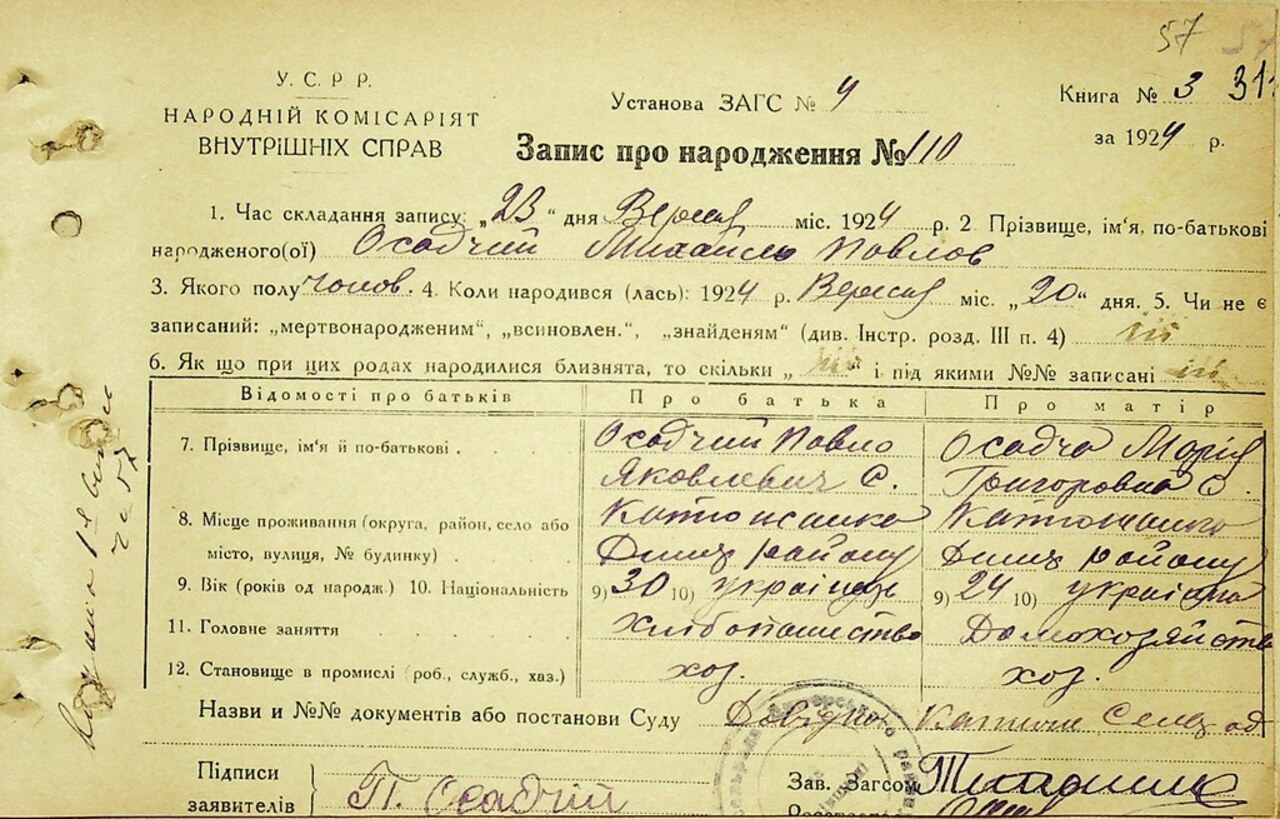 57
У. С. Р. Р.
НАРОДНІЙ КОМІСАРІЯТ
ВНУТРІШНІХ СПРАВ
Установа ЗАГС № 4
Книга № 3 31
за 1924 р.
Запис про народження № 110
1. Час складання запису: „23“ дня Вересня міс. 1924 р. 2. Прізвище, ім'я, по-батькові
народженого(ої) Осадчий Михайль Павлов
3. Якого полу чолов. 4. Коли народився (лась): 1924 р. Вересня міс. „20“ дня. 5. Чи не є
записаний: „мертвонародженим“, „всиновлен.“, „знайденям“ (див. Інстр. розд. III п. 4) ні
6. Як що при цих родах народилися близнята, то скільки „ні“ і під якими №№ записані ні
Відомості про батьків Про батька Про матір
7. Прізвище, ім'я й по-батькові . . . Осадчий Павло Осадча Марія
Яковлевич С. Григоровна С.
8. Місце проживання (округа, район, село або
місто, вулиця, № будинку) . району району
9. Вік (років од народж.) 10. Національність 9) 30 10) українець 9) 24 10) українка
11. Головне заняття . . . . . Хлібопашество Домохозяйство
12. Становище в промислі (роб., служб., хаз.) хоз. хоз.
Назви и №№ документів або постанови Суду Довідка
Підписи
заявителів П. Осадчій
Зав. Загсом